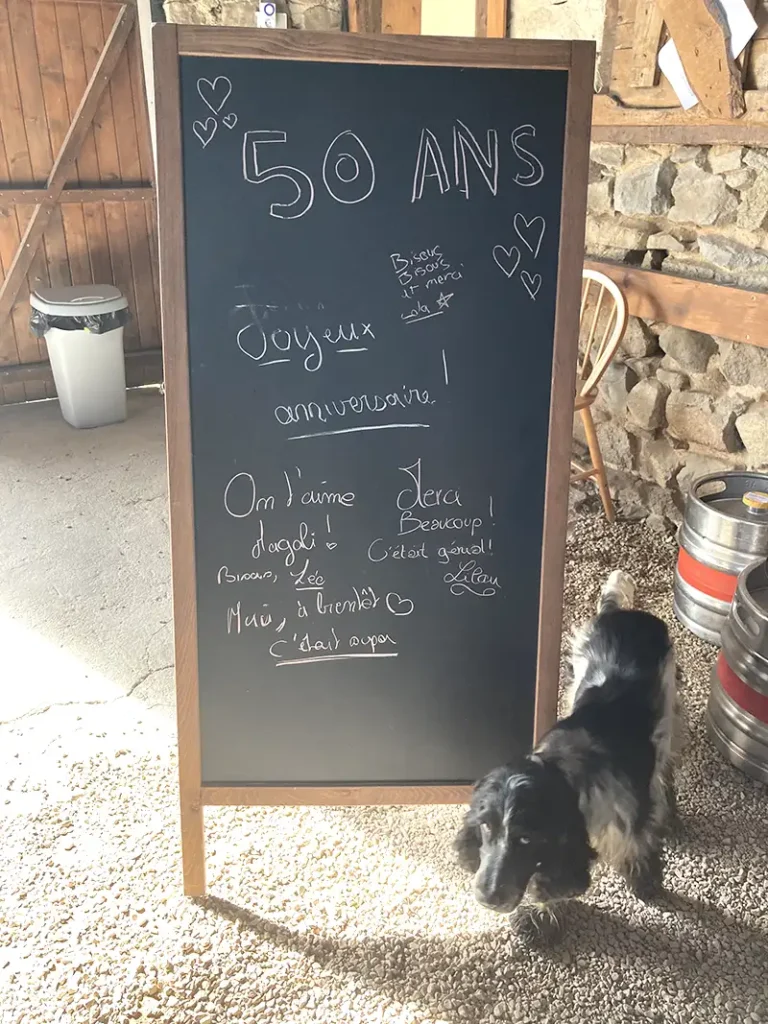 50 ANS
Bisous
Bisous
et merci
Lola
Joyeux
anniversaire !
On t'aime
Magali !
Bisous, Léo
Merci, à bientôt
c'était super
Merci
Beaucoup !
C'était génial !
Lilou